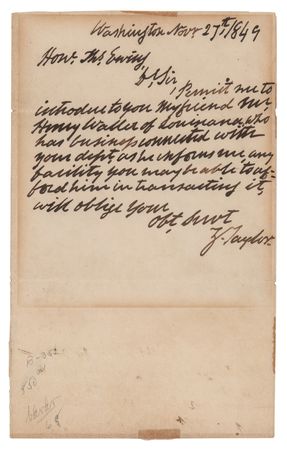 Washington Novr 27th 1849
Honl. Thos. Ewing,
Dr Sir
Permitt me to
introduce to you my friend Mr
Henry Wader of Louisiana, who
has business connected with
your dept, as he informs me any
facility you may be able to af-
ford him in transacting it,
will oblige your
Obt. Servt
Z. Taylor